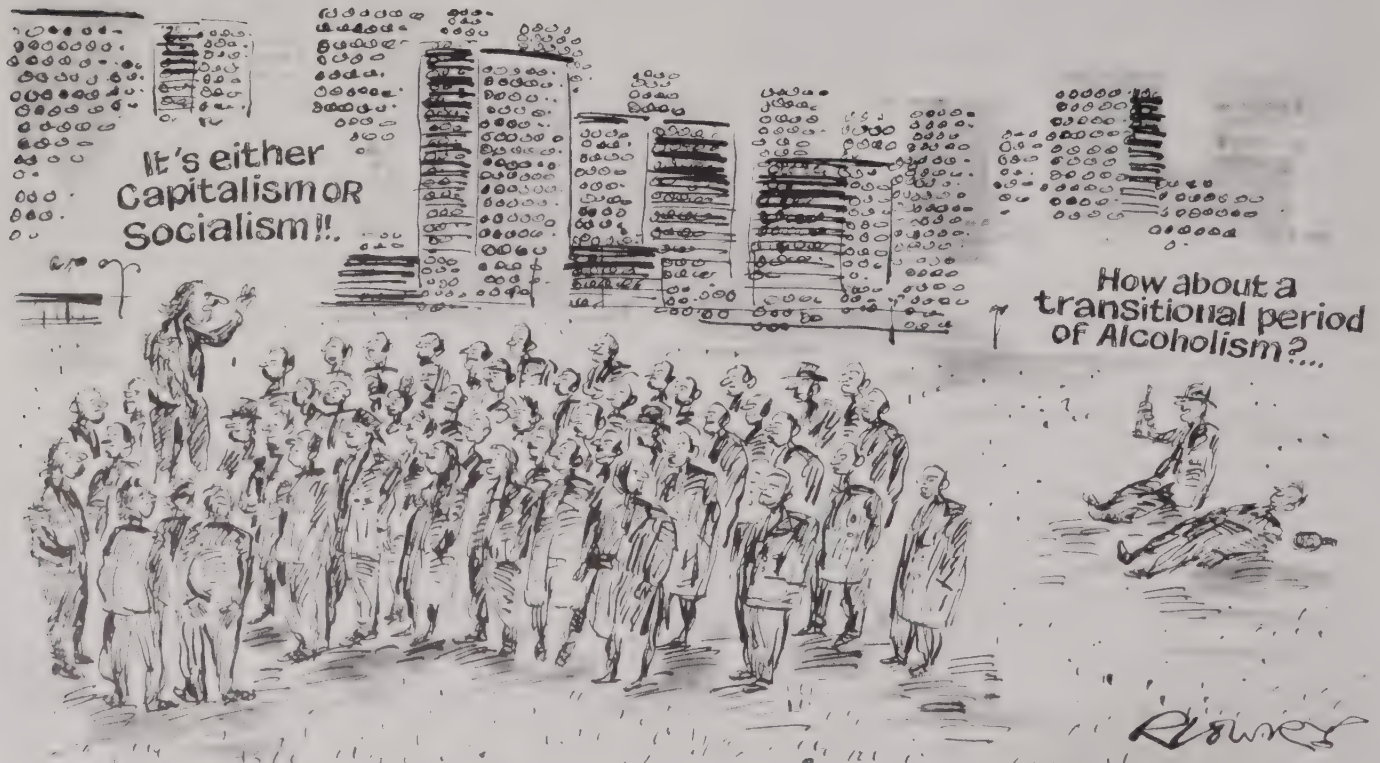 It's either
Capitalism OR
Socialism!!.
How about a
transitional period
of Alcoholism?...